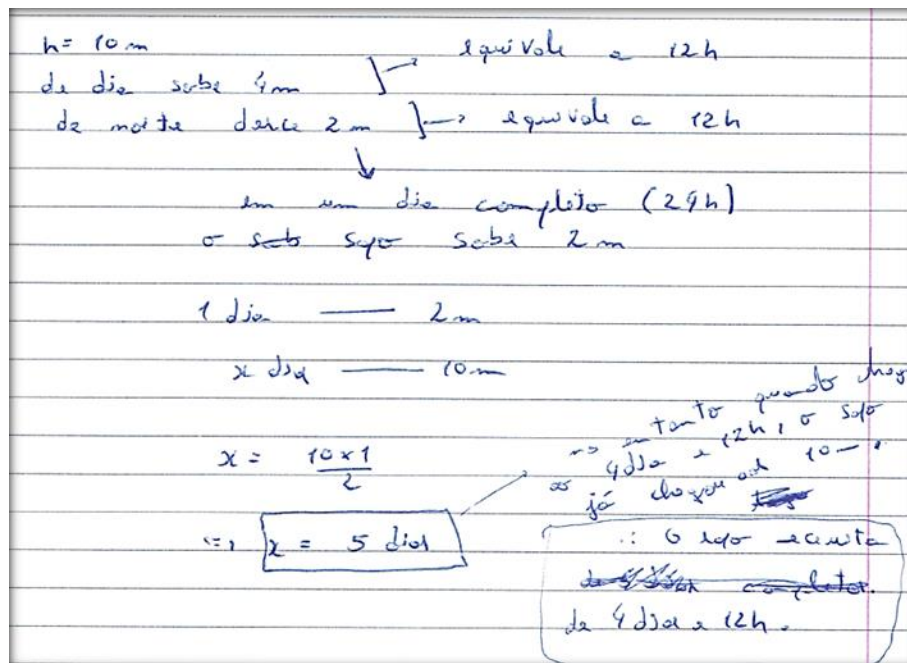 h= 10 m
de dia sobe 4m } → equivale a 12h
de noite desce 2 m } → equivale a 12h
↓
em um dia completo (24h)
o sapo sobe 2 m
1 dia —— 2m
x dia —— 10m
x = 10x1 / 2
=> x = 5 dias
no entanto quando
ao 4 dia e 12h, o sapo
já chegou aos 10m.
∴ O sapo
de 4 dia e 12h.